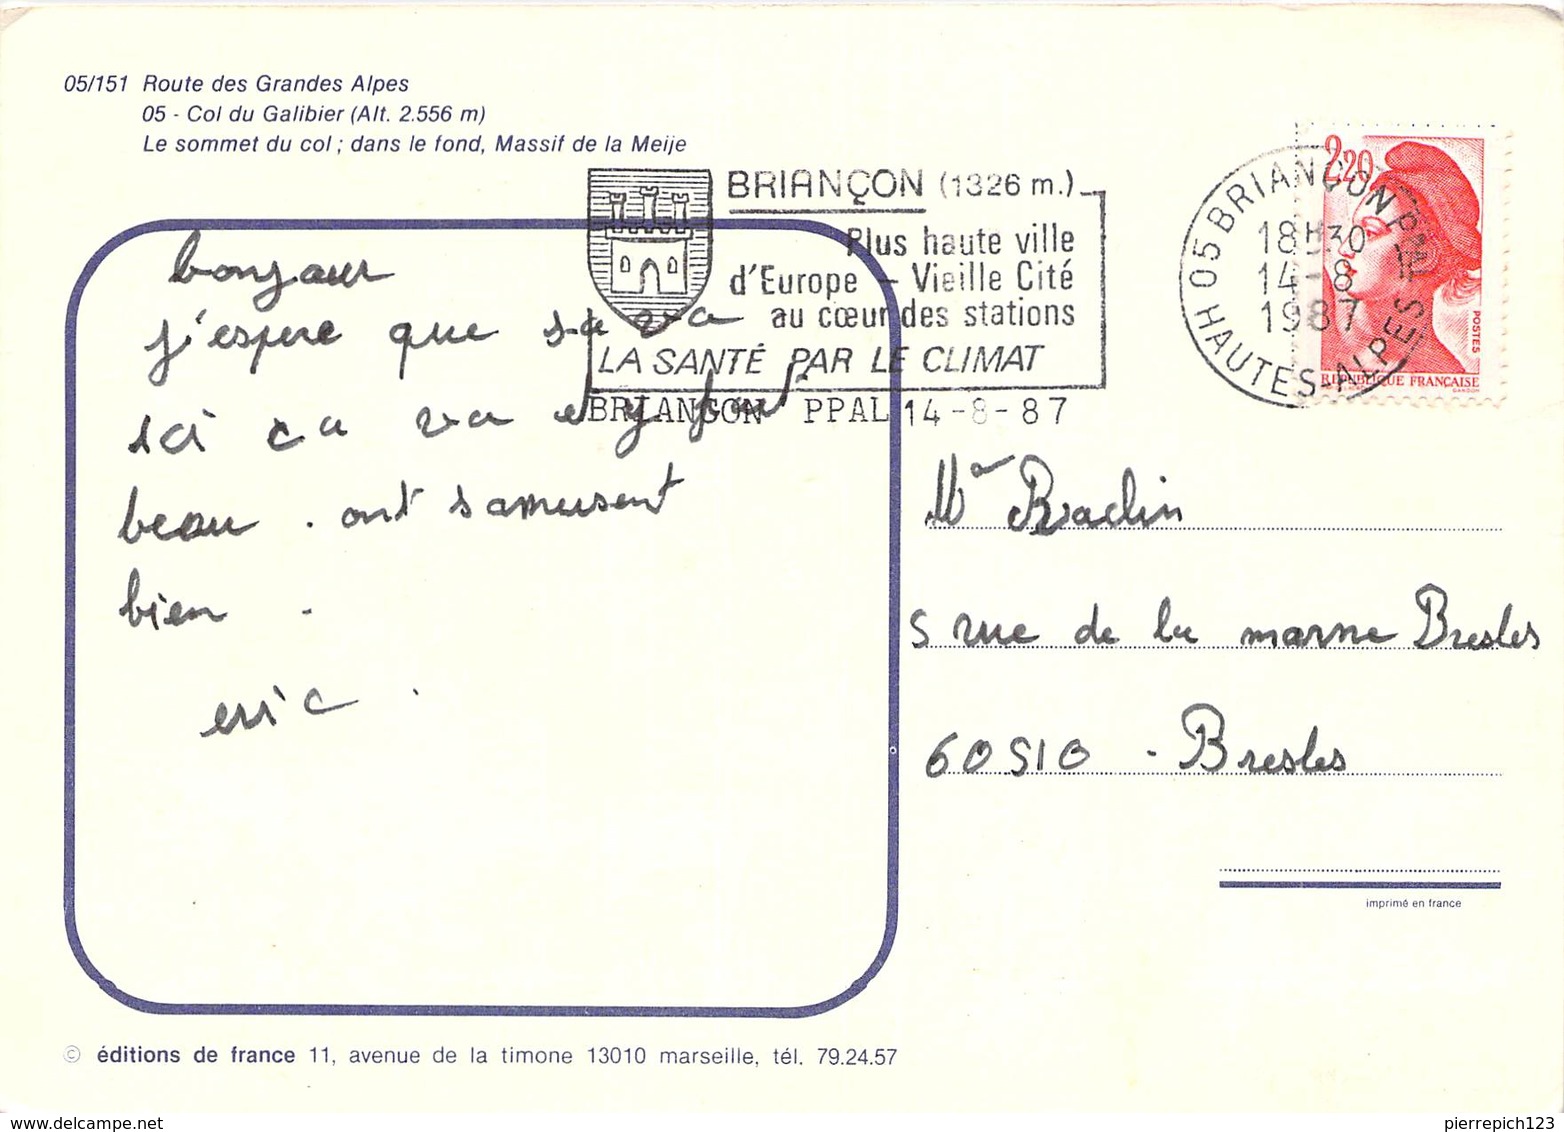 05/151 Route des Grandes Alpes
05 - Col du Galibier (Alt. 2.556 m)
Le sommet du col ; dans le fond, Massif de la Meije
BRIANÇON (1326 m.)
Plus haute ville
d'Europe – Vieille Cité
au cœur des stations
LA SANTÉ PAR LE CLIMAT
BRIANCON PPAL 14-8-87
05 BRIANÇON PPAL
18H30
14-8
1987
HAUTES-ALPES
2,20
POSTES
RÉPUBLIQUE FRANÇAISE
GANDON
bonjour
j'espere que sa va
ici ca va et y fait
beau . ont s'amusent
bien .
eric .
Mr Raclin
5 rue de la marne Bresles
60510 - Bresles
imprimé en france
© éditions de france 11, avenue de la timone 13010 marseille, tél. 79.24.57
pierrepich123